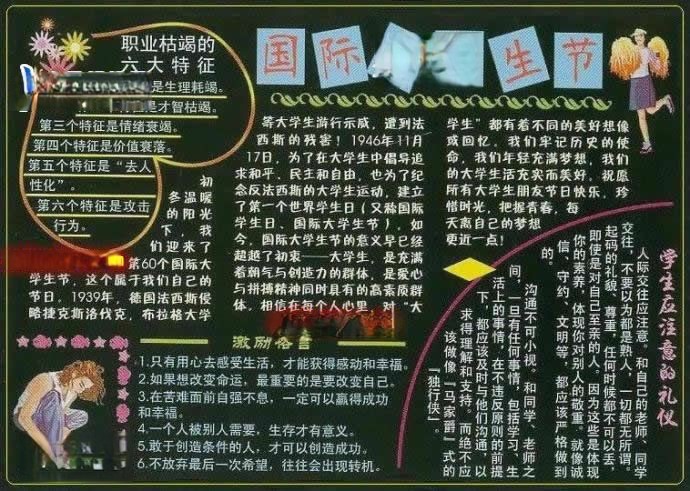 国际 生节
职业枯竭的
六大特征
是生理耗竭。
是才智枯竭。
第三个特征是情绪衰竭。
第四个特征是价值衰落。
第五个特征是“去人
性化”。
第六个特征是攻击
行为。
初
冬温暖
的阳光
下，我
们迎来了
第60个国际大
学生节，这个属于我们自己的
节日。1939年，德国法西斯侵
略捷克斯洛伐克，布拉格大学
等大学生游行示威，遭到法
西斯的残害！1946年11月
17日，为了在大学生中倡导追
求和平、民主和自由，也为了纪
念反法西斯的大学生运动，建立
了第一个世界学生日（又称国际
学生日、国际大学生节），如
今，国际大学生节的意义早已经
超越了初衷——大学生，是充满
着朝气与创造力的群体，是爱心
与拼搏精神同时具有的高素质群
体，相信在每个人心里，对“大
学生”都有着不同的美好想像
或回忆，我们牢记历史的使
命，我们年轻充满梦想，我们
的大学生活充实而美好，祝愿
所有大学生朋友节日快乐，珍
惜时光，把握青春，每
天离自己的梦想
更近一点！
激励名言
1.只有用心去感受生活，才能获得感动和幸福。
2.如果想改变命运，最重要的是要改变自己。
3.在苦难面前自强不息，一定可以赢得成功
和幸福。
4.一个人被别人需要，生存才有意义。
5.敢于创造条件的人，才可以创造成功。
6.不放弃最后一次希望，往往会出现转机。
学生应注意的礼仪
人际交往应注意。和自己的老师、同学
交往，不要以为都是熟人，一切都无所谓。
起码的礼貌、尊重，任何时候都不可以丢，
即使是对自己至亲的人。因为这些是体现
你的素养，体现你对别人的敬重。就像诚
信、守约、文明等，都应该严格做到
的。
沟通不可小视。和同学、老师之
间，一旦有任何事情，包括学习、生
活上的事情，在不违反原则的前提
下，都应该及时与他们沟通，以
求得理解和支持。而绝不应
该做像“马家爵”式的
“独行侠”。